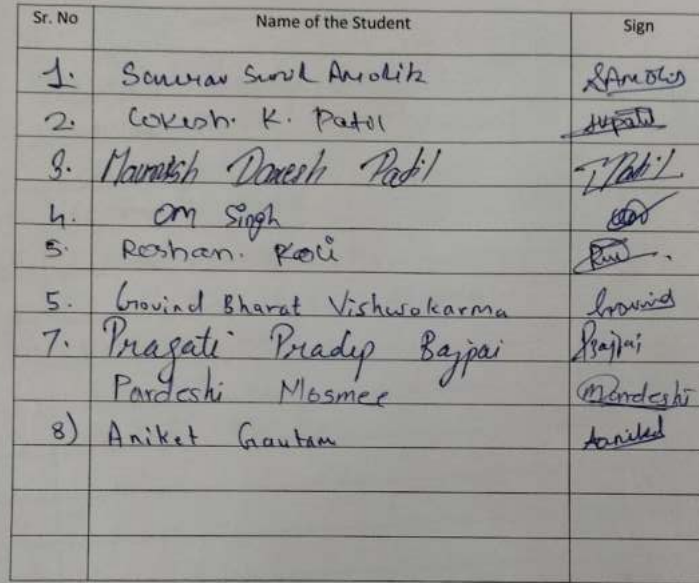 Sr. No Name of the Student Sign
1. Saurav Sunil Amolik
2. Lokesh. K. Patil Lkpatil
3. Patil Patil
4. Om Singh
5. Roshan. Koli
5. Govind Bharat Vishwakarma Govind
7. Pragati Pradip Bajpai Bajpai
Pardeshi Mosmee
8) Aniket Gautam Aaniket